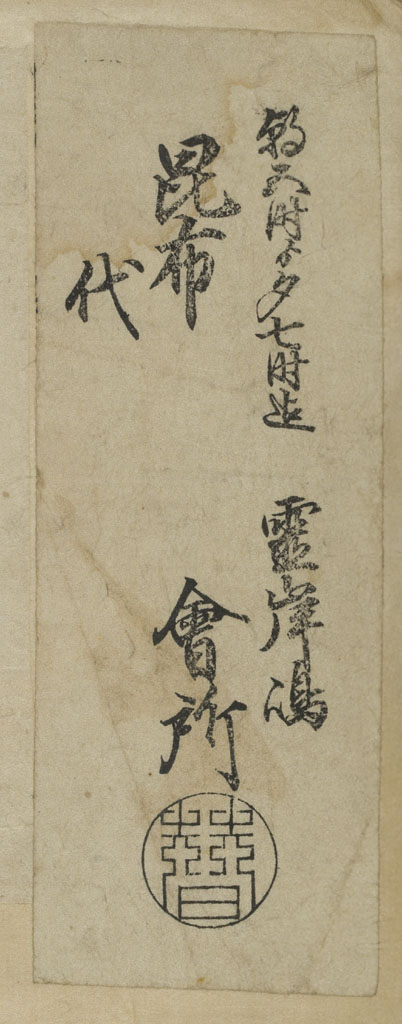 朝五時ゟ夕七時迄
霊岸嶋
昆布
代
會所
替